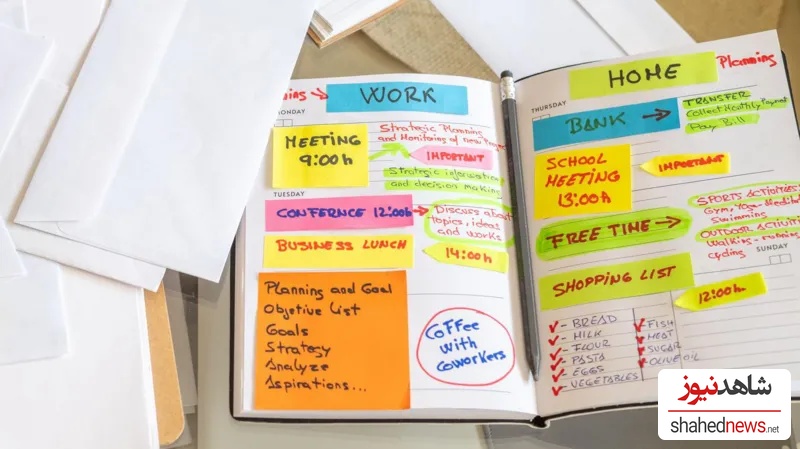 Planning
WORK
MONDAY
MEETING
9:00h
Strategic Planning
and Monitoring of new
IMPORTANT
Strategic information
and decision making
TUESDAY
CONFERNCE 12:00h
Discuss about
topics, ideas
and works
BUSINESS LUNCH
14:00h
Planning and Goal
Objetive List
Goals
Strategy
Analyze
Aspirations...
Coffee
with
coworkers
HOME
Planning
THURSDAY
BANK
TRANSFER
Collect Monthly Payment
Pay Bill
SCHOOL
MEETING
13:00h
IMPORTANT
FREE TIME
SPORTS ACTIVITIES
Gym, Yoga-
Swimming
OUTDOOR
Walking - running
cycling
SUNDAY
SHOPPING LIST
12:00h
- BREAD
- MILK
- FLOUR
- PASTA
- EGGS
- VEGETABLES
- FISH
- MEAT
- SUGAR
- OLIVE OIL
شاهدنیوز
shahednews.net